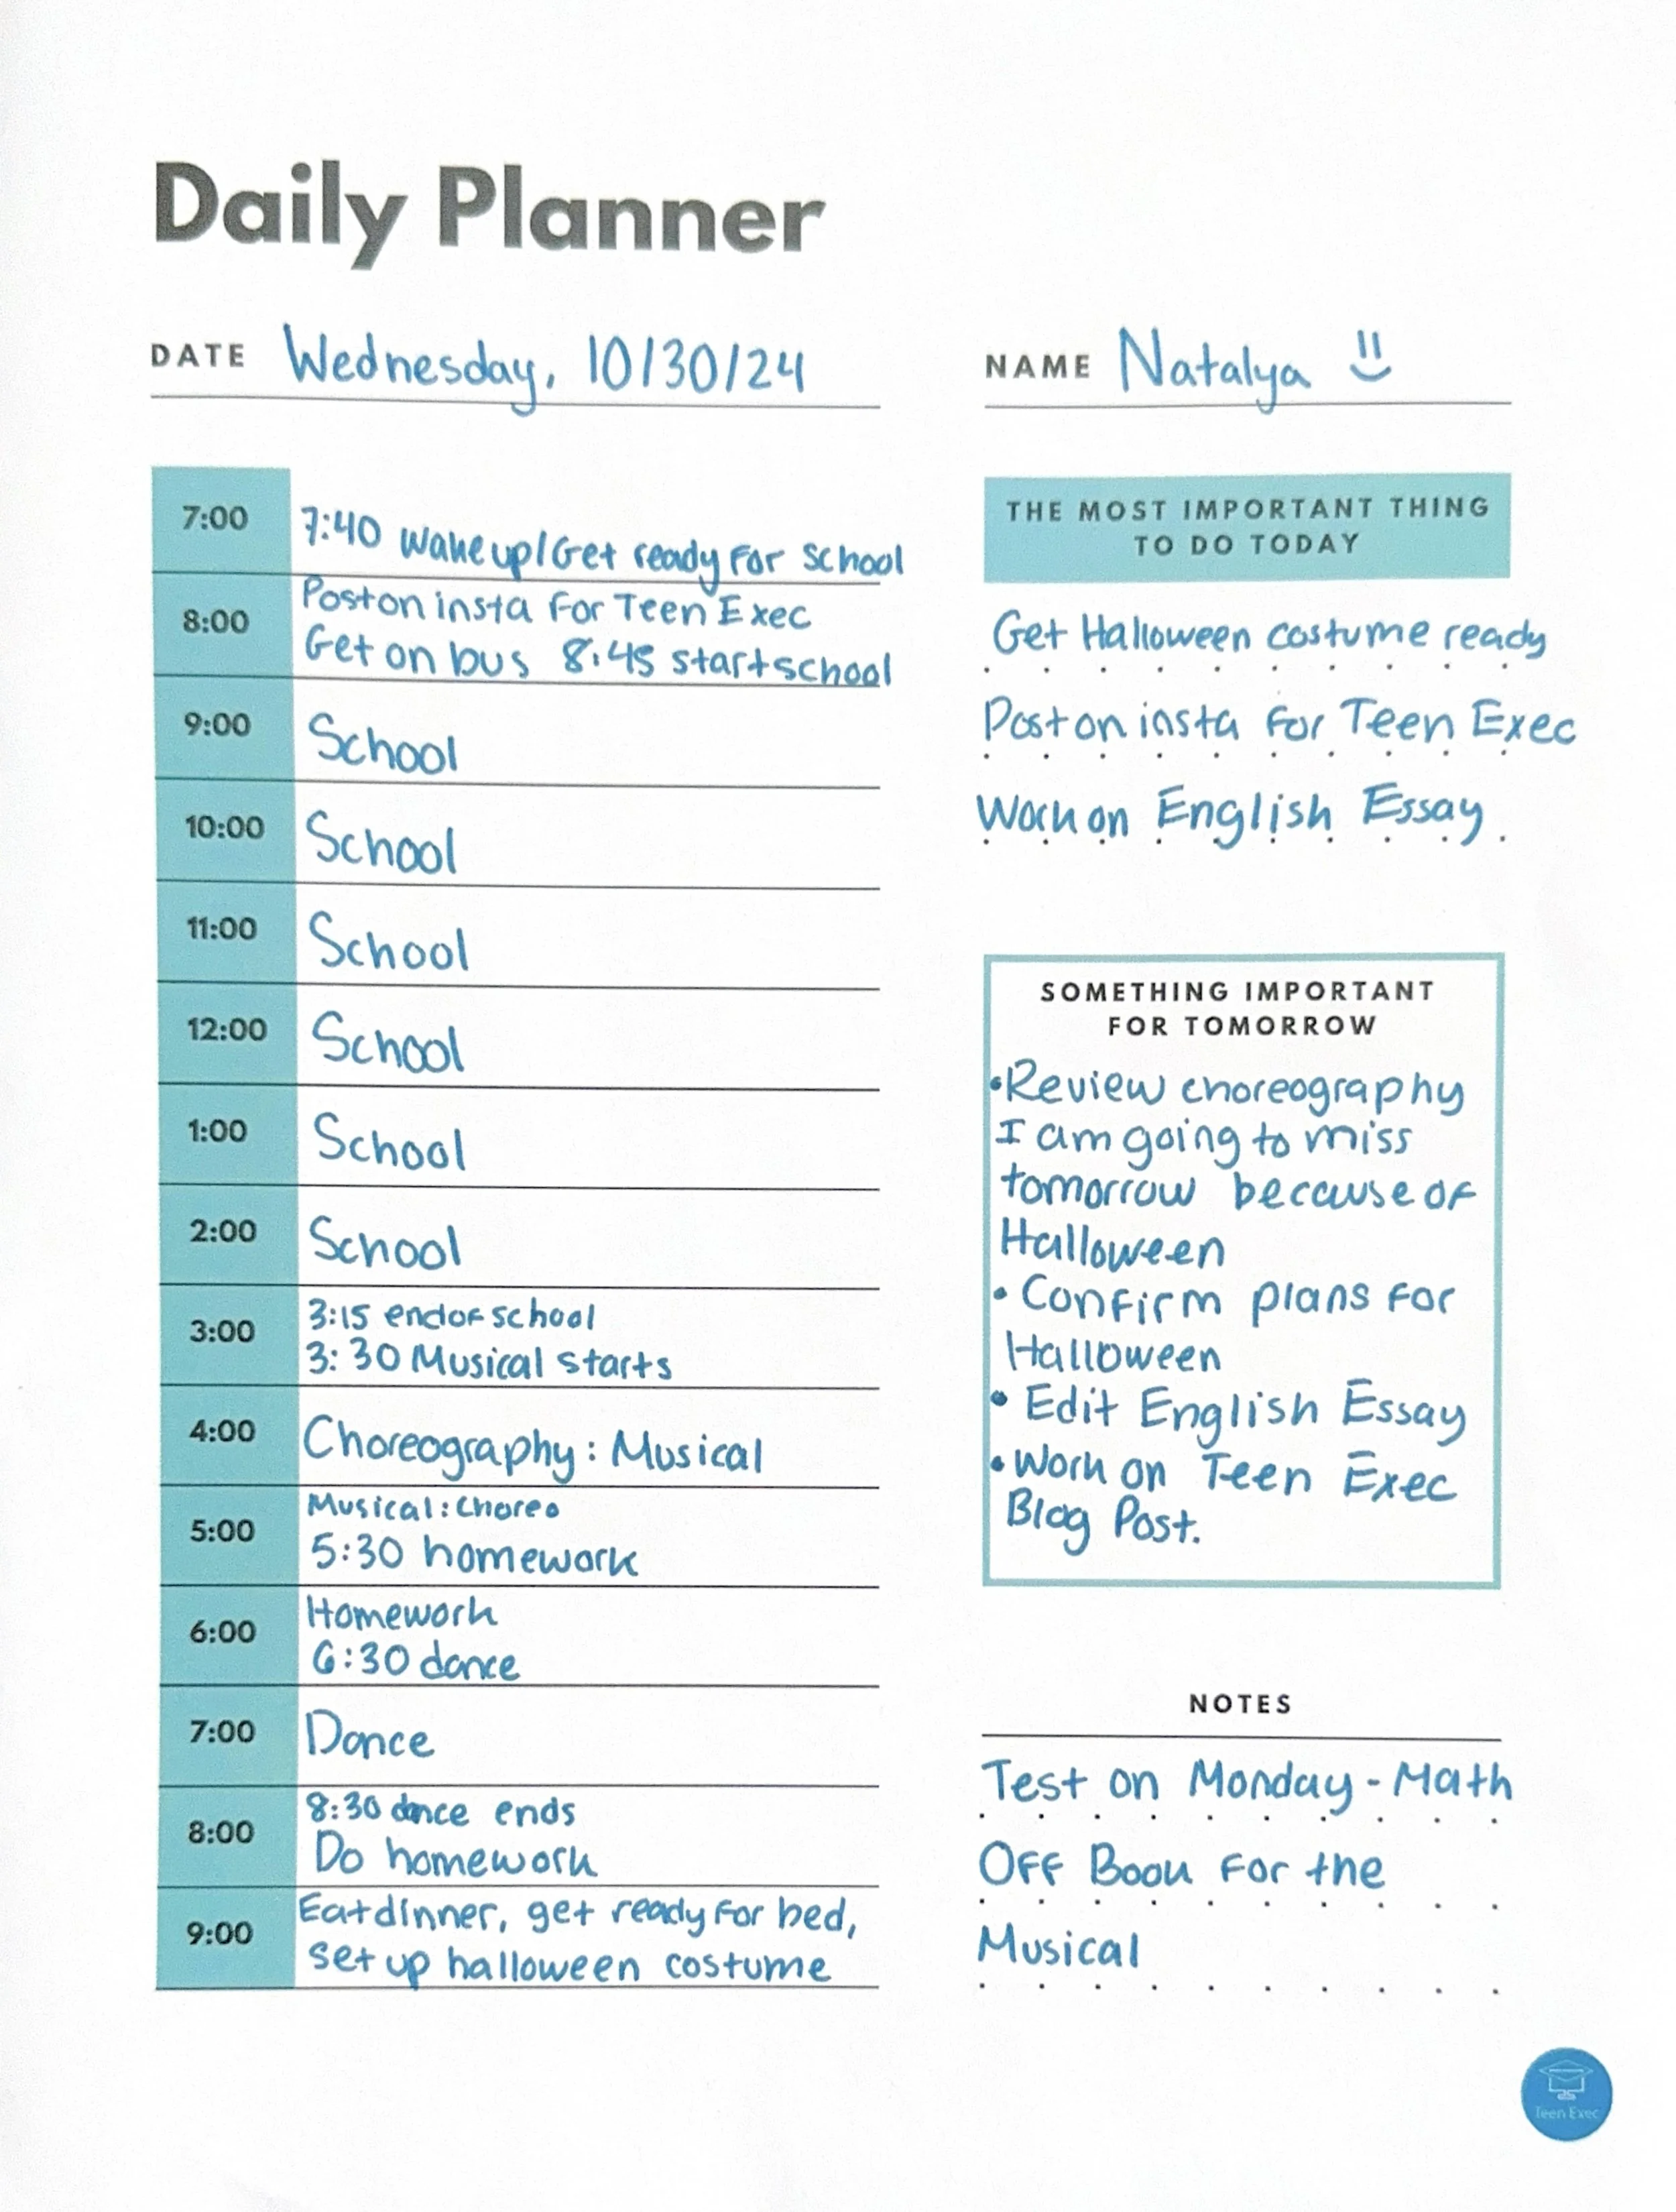 Daily Planner
DATE Wednesday, 10/30/24
NAME Natalya
7:00 7:40 Wake up/Get ready for school
8:00 Post on insta for Teen Exec
Get on bus 8:45 start school
9:00 School
10:00 School
11:00 School
12:00 School
1:00 School
2:00 School
3:00 3:15 end of school
3:30 Musical starts
4:00 Choreography: Musical
5:00 Musical: Choreo
5:30 homework
6:00 Homework
6:30 dance
7:00 Dance
8:00 8:30 dance ends
Do homework
9:00 Eat dinner, get ready for bed,
set up halloween costume
THE MOST IMPORTANT THING
TO DO TODAY
Get Halloween costume ready
Post on insta for Teen Exec
Work on English Essay
SOMETHING IMPORTANT
FOR TOMORROW
•Review choreography
I am going to miss
tomorrow because of
Halloween
• Confirm plans for
Halloween
• Edit English Essay
• Work on Teen Exec
Blog Post.
NOTES
Test on Monday - Math
Off Book for the
Musical
Teen Exec